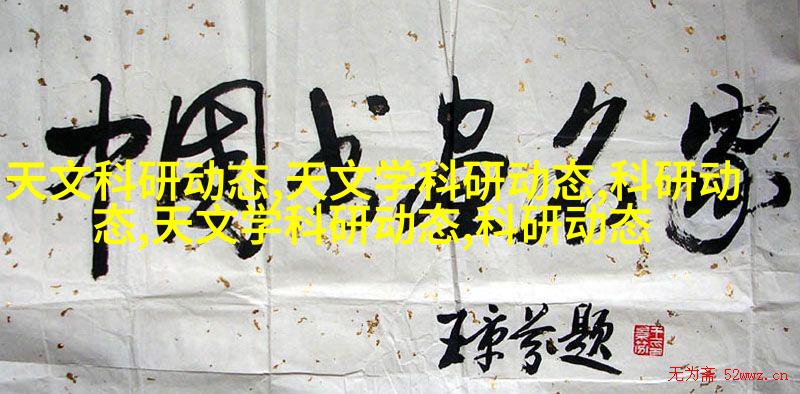 中国书画名家
天文科研动态,天文学科研动态,科研动
态,天文学科研动态,科研动态
王京芬题
无为斋 52wwz.cn